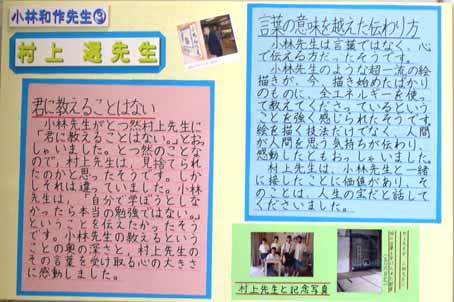 小林和作先生③
村上 選先生
君に教えることはない
小林先生がとつ然村上先生に
「君に教えることはない。」とおっ
しゃいました。とつ然のことな
ので、村上先生は、見捨てられ
たのかと思ったそうです。しか
しそれは違っていました。小林
先生は、「自分で学ぼうとしな
かったら本当の勉強ではない。」
ということを伝えたかったそう
です。小林先生の教えるという
ことの奥の深さと、村上先生の
その言葉を受け取る心の大きさ
に感動しました。
言葉の意味を越えた伝わり方
小林先生は言葉ではなく、心
で伝える方だったそうです。
小林先生のような超一流の絵
描きが、今、描き始めたばかり
のものに、全エネルギーを使っ
て教えてくださっているという
ことを強く感じられたそうです。
絵を描く技法だけでなく、人間
が人間を思う気持ちが伝わり、
感動したともおっしゃいました。
村上先生は、小林先生と一緒
に接したことに価値があり、そ
のことは、人生の宝だと話して
くださいました。
村上先生と記念写真